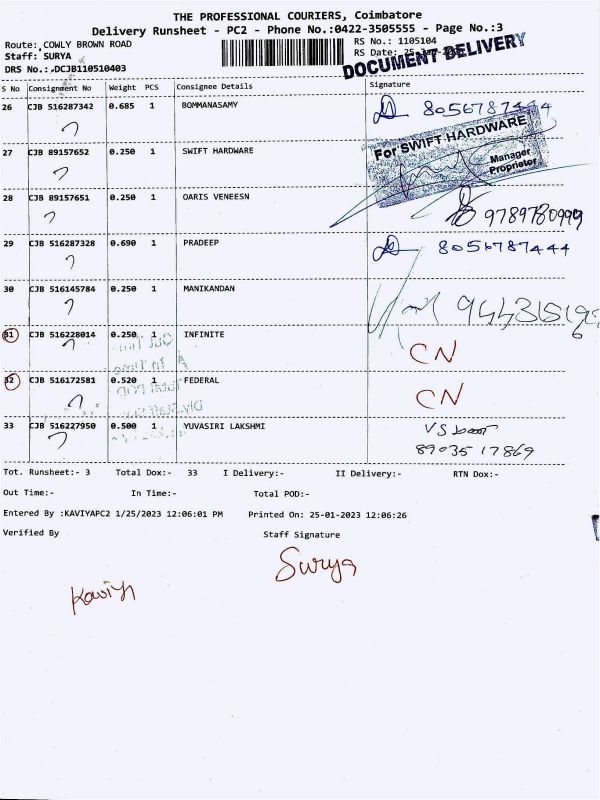 THE PROFESSIONAL COURIERS, Coimbatore
Delivery Runsheet - PC2 - Phone No.:0422-3505555 - Page No.:3
Route: COWLY BROWN ROAD
RS No.: 1105104
Staff: SURYA
RS Date:
DOCUMENT DELIVERY
DRS No.: DCJB110510403
S No Consignment No Weight PCS Consignee Details Signature
26 CJB 516287342 0.685 1 BOMMANASAMY 8056787444
27 CJB 89157652 0.250 1 SWIFT HARDWARE
For SWIFT HARDWARE
Manager
Proprietor
28 CJB 89157651 0.250 1 OARIS VENEESN 9789780999
29 CJB 516287328 0.690 1 PRADEEP 8056787444
30 CJB 516145784 0.250 1 MANIKANDAN
31 CJB 516228014 0.250 1 INFINITE CN
32 CJB 516172581 0.520 1 FEDERAL CN
33 CJB 516227950 0.500 1 YUVASIRI LAKSHMI
8903517869
Tot. Runsheet:- 3 Total Dox:- 33 I Delivery:- II Delivery:- RTN Dox:-
Out Time:- In Time:- Total POD:-
Entered By :KAVIYAPC2 1/25/2023 12:06:01 PM Printed On: 25-01-2023 12:06:26
Verified By Staff Signature
Surya